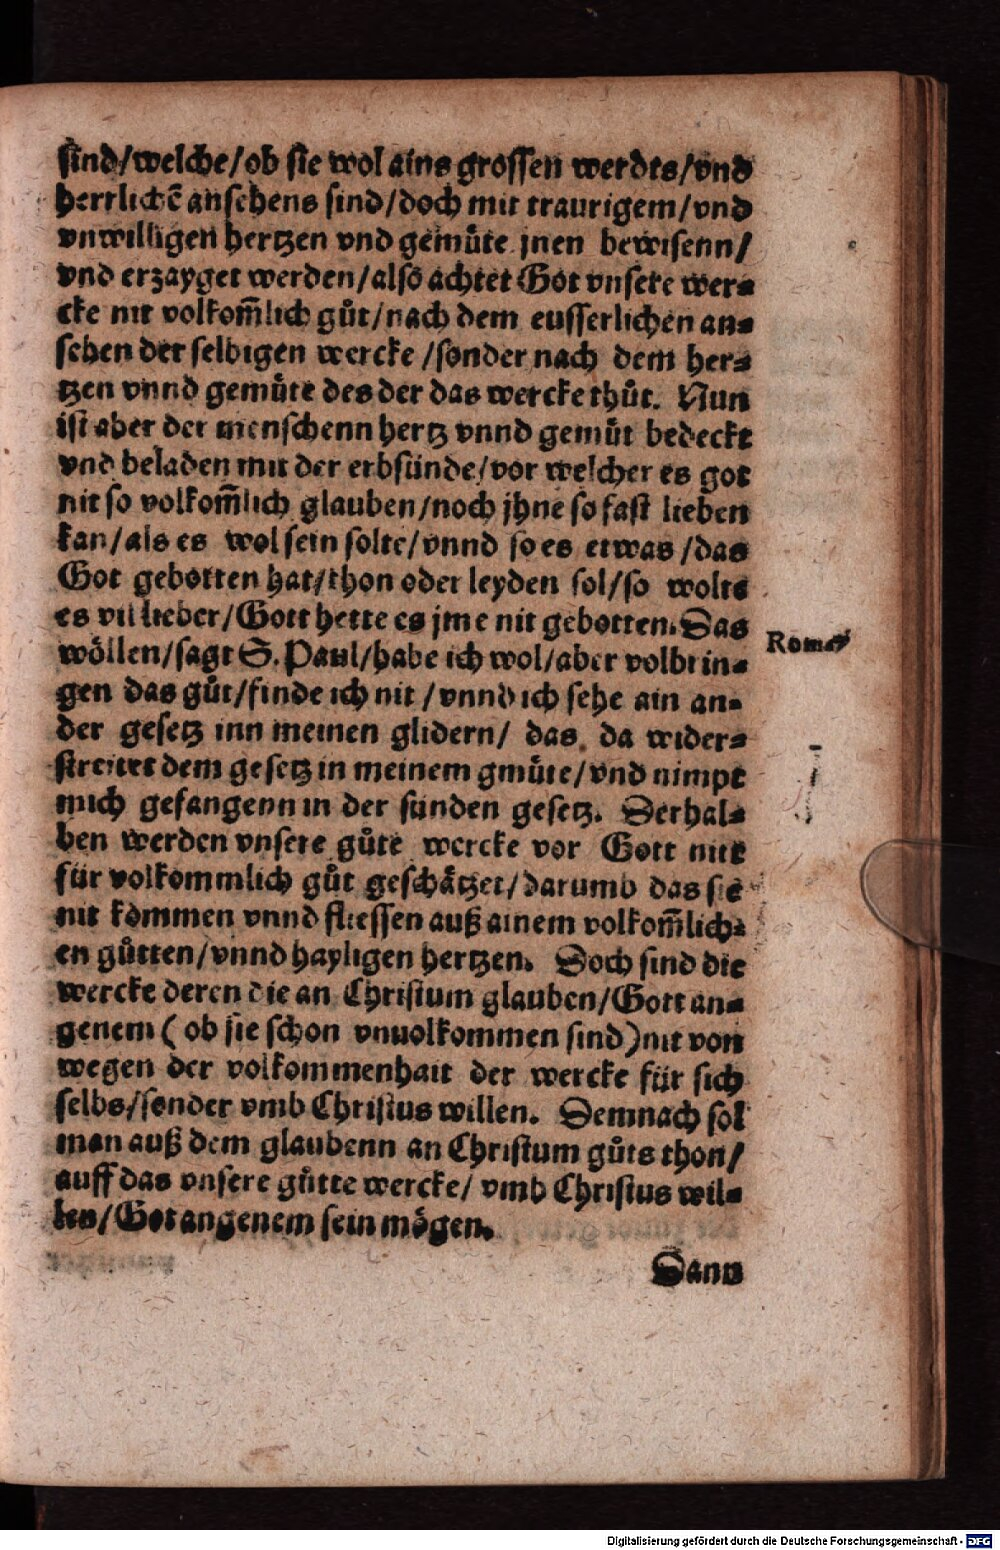 sind/welche/ob sie wol ains grossen werdts/vnd
herrlichē ansehens sind/doch mit traurigem/vnd
vnwilligen hertzen vnd gemüte jnen bewisenn/
vnd erzayget werden/also achtet Got vnsere wer⸗
cke nit volkom̃lich gůt/nach dem eusserlichen an⸗
sehen der selbigen wercke/sonder nach dem her⸗
tzen vnnd gemüte des der das wercke thůt. Nun
ist aber der menschenn hertz vnnd gemüt bedeckt
vnd beladen mit der erbsünde/vor welcher es got
nit so volkom̃lich glauben/noch jhne so fast lieben
kan/als es wol sein solte/vnnd so es etwas/das
Got gebotten hat/thon oder leyden sol/so wolts
es vil lieber/Gott hette es jme nit gebotten. Das
wöllen/sagt S. Paul/habe ich wol/aber volbrin⸗
gen das gůt/finde ich nit/vnnd ich sehe ain an⸗
der gesetz inn meinen glidern/ das da wider⸗
streitet dem gesetz in meinem gmüte/vnd nimpt
mich gefangenn in der sünden gesetz. Derhal⸗
ben werden vnsere gůte wercke vor Gott nitt
für volkommlich gůt geschätzet/darumb das sie
nit kommen vnnd fliessen auß ainem volkom̃lich⸗
en gůtten/vnnd hayligen hertzen. Doch sind die
wercke deren die an Christum glauben/Gott an⸗
genem (ob sie schon vnuolkommen sind) nit von
wegen der volkommenhait der wercke für sich
selbs/sonder vmb Christus willen. Demnach sol
man auß dem glaubenn an Christum gůts thon/
auff das vnsere gůtte wercke/ vmb Christus wil⸗
len/Got angenem sein mögen.
Dann
Roma
Digitalisierung gefördert durch die Deutsche Forschungsgemeinschaft - DFG